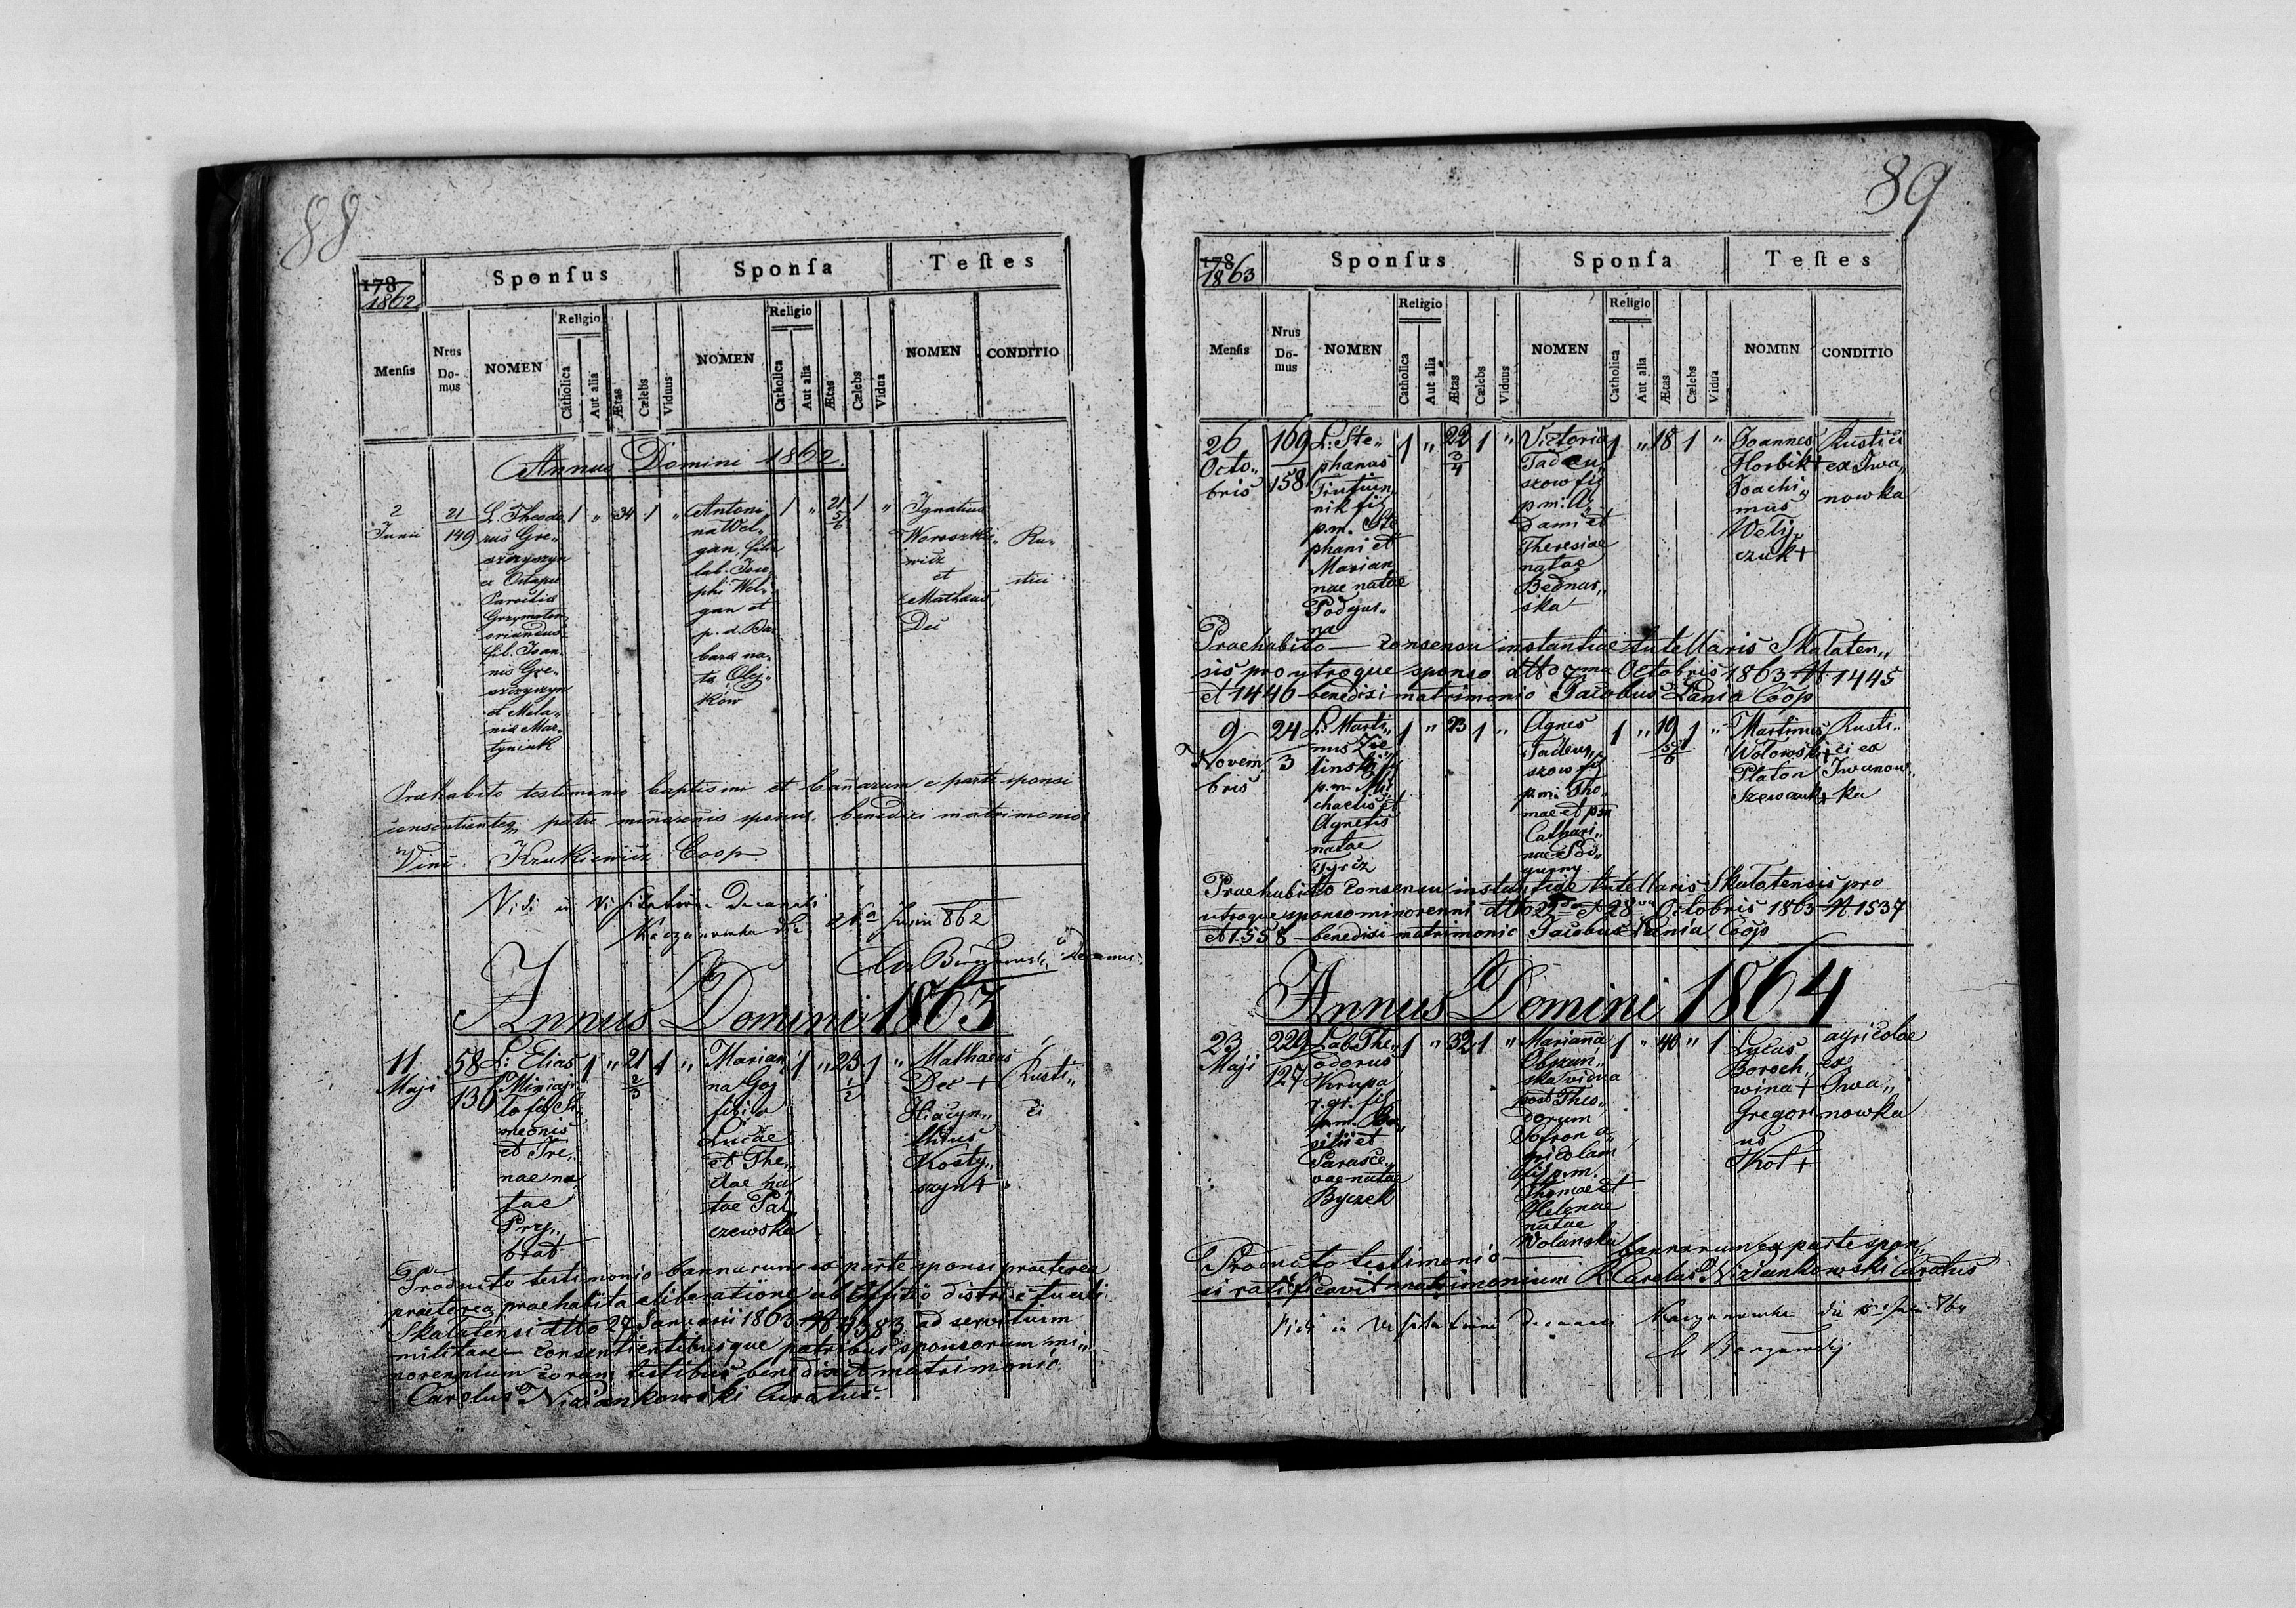 88
178
1862
Sponſus
Sponſa
Teſtes
Menſis
Nrus Do-mus
NOMEN
Religio
Catholica
Aut alia
Ætas
Cælebs
Viduus
NOMEN
Religio
Catholica
Aut alia
Ætas
Cælebs
Vidua
NOMEN
CONDITIO
Annus Domini 1862.
2
Junii
21
149
L. Theodo
rus Gre„
szczyszyn
ex Ostapie
Parochia
Grzymałow
oriundus
fil. Joan„
nis Gre„
szczyszyn
et Mela„
nia Mar„
tyniuk
1 „ 34 1 „
Antoni„
na Wel„
gan, filia
lab. Jose
phi Wel„
gan et
p. d. Bar
bara na„
ta Olij„
ków
1 „ 21 5/6 1 „
Ignatius
Woroszkie„
wicz
et
Mathaeus
Dec
Ru„
stici
Praehabito testimonio baptismi et bannarum e parte sponsi
consentienteq patre minorenis sponsae benedixi matrimonio
Vinc. Krukiewicz Coop.
Vidi in Visitatione Decanali
Kaczanowka die 26a Junii 862
Annus Domini 1863
11
Maji
58
136
L: Elias
Mikiaj„
ło fil. Si„
meonis
et Ire„
nae na
tae
Pry„
brat
1 „ 21 2/3 1 „
Marian„
na Goj
filia
Lucae
et The„
clae na
tae Pal
czewska
1 „ 23 1/2 1 „
Mathaeus
Dec +
Hiacyn„
thus
Kosty„
szyn +
Rusti„
ci
Producto testimonio bannarum ex parte sponsi praeterea
praeterea praehabita eliberatione ab Officio districtuali
Skalatensi dtto 27 Januarii 1863 N 4383 ad servitium
militare consentientibusque patribus sponsorum mi„
norennium coram testibus benedixit matrimonio
Carolus Niziankowski Curatus.
89
178
1863
Sponſus
Sponſa
Teſtes
Menſis
Nrus Do-mus
NOMEN
Religio
Catholica
Aut alia
Ætas
Cælebs
Viduus
NOMEN
Religio
Catholica
Aut alia
Ætas
Cælebs
Vidua
NOMEN
CONDITIO
26
Octo„
bris
169
158
L: Ste„
phanus
Trutwin„
nik fil
p.m. Ste
phani et
Marian
nae natae
Podgur„
na
1 „ 22 3/4 1 „
Victoria
Tadeu„
szow fil
p.m. A„
dami et
Theresiae
natae
Bednar„
ska
1 „ 18 1 „
Joannes
Horbik +
Joachi„
mus
Wety„
czuk +
Rustici
ex Iwa„
nowka
Praehabito consensu instantiae tutellaris Skałaten„
sis pro utroque sponso dtto 7ma Octobris 1863 N 1445
et 1446 benedixi matrimonio Jacobus Pania Coop
9
Novem„
bris
24
3
L: Marti„
nus Zie
linski fil
p.m. Mi„
chaelis et
Agnetis
natae
Tyrcz
1 „ 23 1 „
Agnes
Tadeu„
szow fil
p.m. Tho„
mae et pm
Cathari„
nae Pod„
gurny
1 „ 19 5/6 1 „
Martinus
Wolowski +
Platon
Szewczuk +
Rusti„
ci ex
Iwanow„
ka
Praehabito consensu instantiae tutellaris Skałatensis pro
utroque sponso minorenni dtto 22da et 28va Octobris 1863 N 1537
et 1558 benedixi matrimonio Jacobus Pania Coop
Annus Domini 1864
23
Maji
229
127
Lab. The„
odorus
Krupa
r. gr. fil
p.m. Ba„
silii et
Parasce„
vae natae
Byczek
1 „ 32 1 „
Marianna
Obszań„
ska vidua
post Theo„
dorum
Sofron a„
gricolam
fil p.m.
Thomae et
Helenae
natae
Wolanska
1 „ 40 „ 1
Lucas
Boroch„
wina +
Gregori
us
Kot +
agricolae
ex
Iwa„
nowka
Producto testimonio bannarum ex parte spon„
si ratificavit matrimonium R Carolus Niziankowski Curatus
Vidi in Visitatione Decanali Kaczanowka die 15 Julii 864